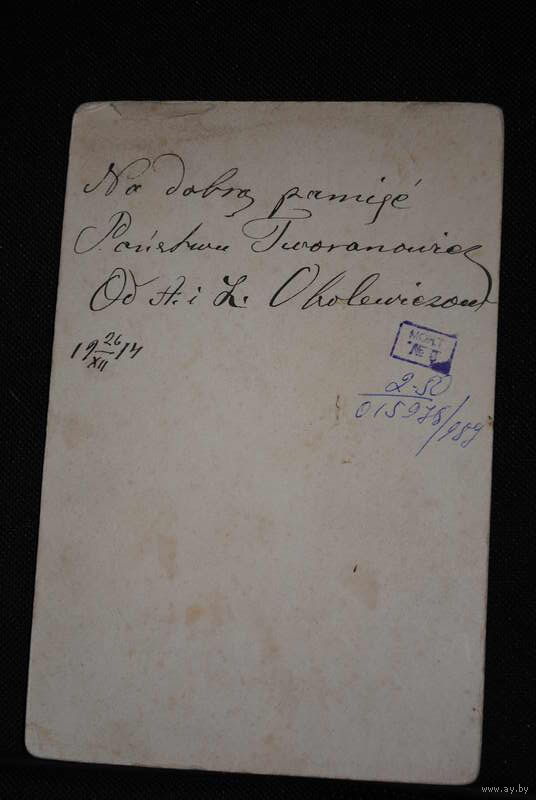 Na dobrą pamięć
Państwu Tworanowicz
Od A. i Z. Obolewiczow
19 26/XII 14
2-50
015978/989
www.ay.by